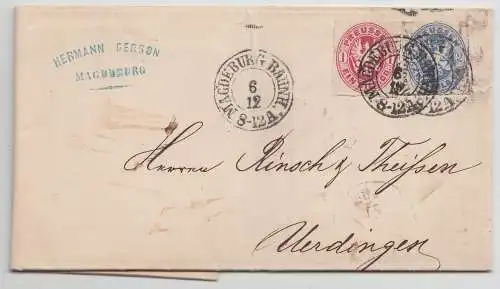 HERMANN GERSON
MAGDEBURG
MAGDEBURG BAHNH.
6
12
8-12A.
PREUSSEN
1
EIN
MAGDEBURG
6
12
8-12A.
Herren Rinsch & Theißen
Uerdingen